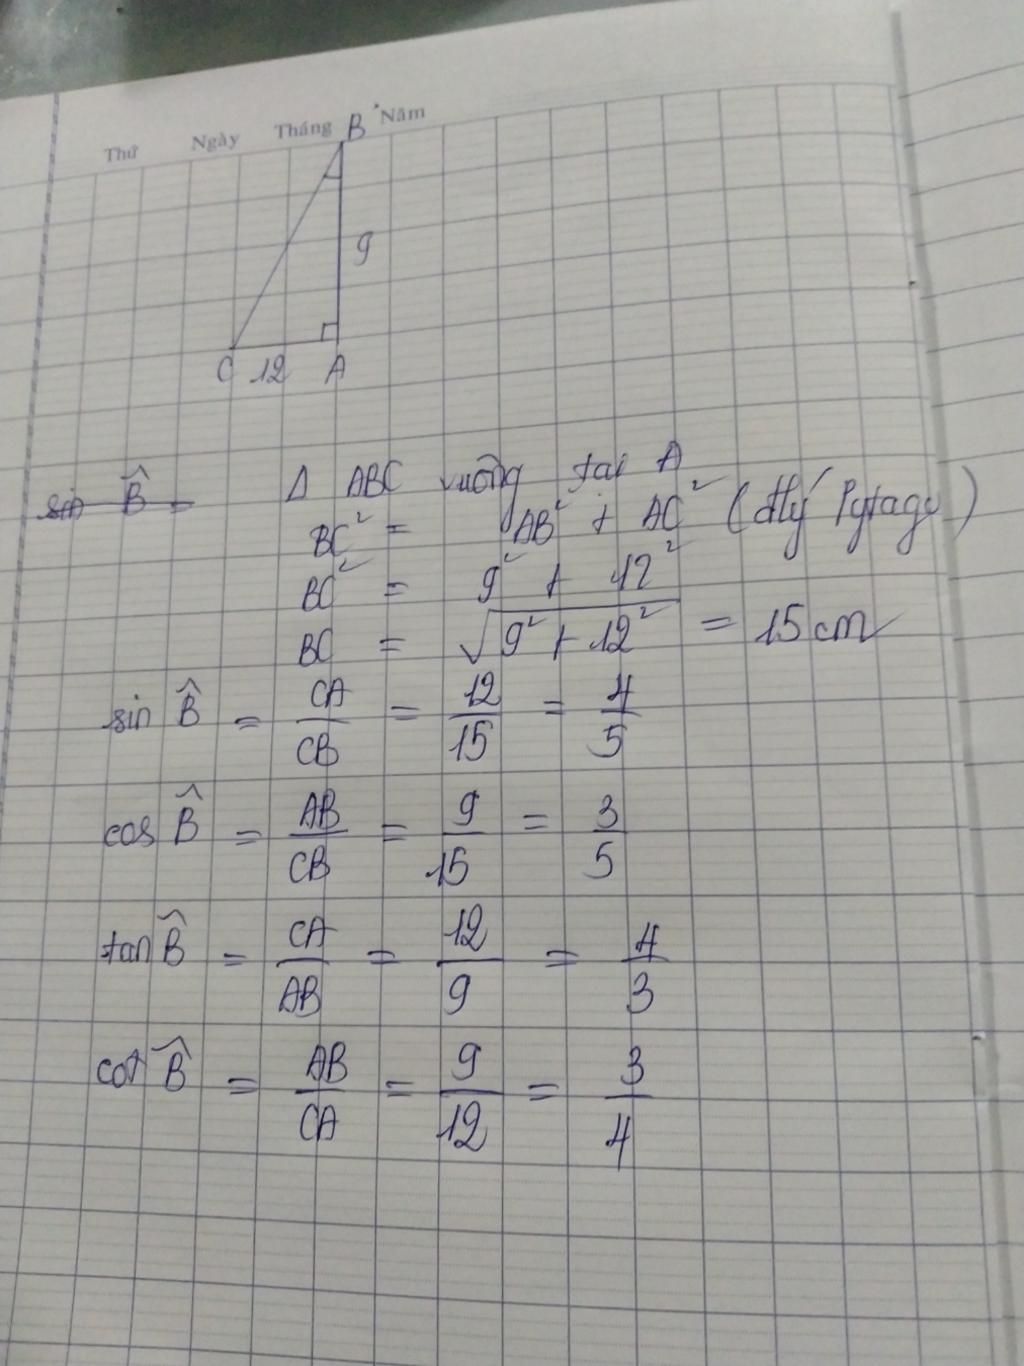 Thứ Ngày Tháng Năm
B
9
C 12 A
sin B̂ = Δ ABC vuông tại A
BC² = AB² + AC² (đlý Pytago)
BC² = 9² + 12²
BC = √(9² + 12²) = 15 cm
sin B̂ = CA/CB = 12/15 = 4/5
cos B̂ = AB/CB = 9/15 = 3/5
tan B̂ = CA/AB = 12/9 = 4/3
cot B̂ = AB/CA = 9/12 = 3/4